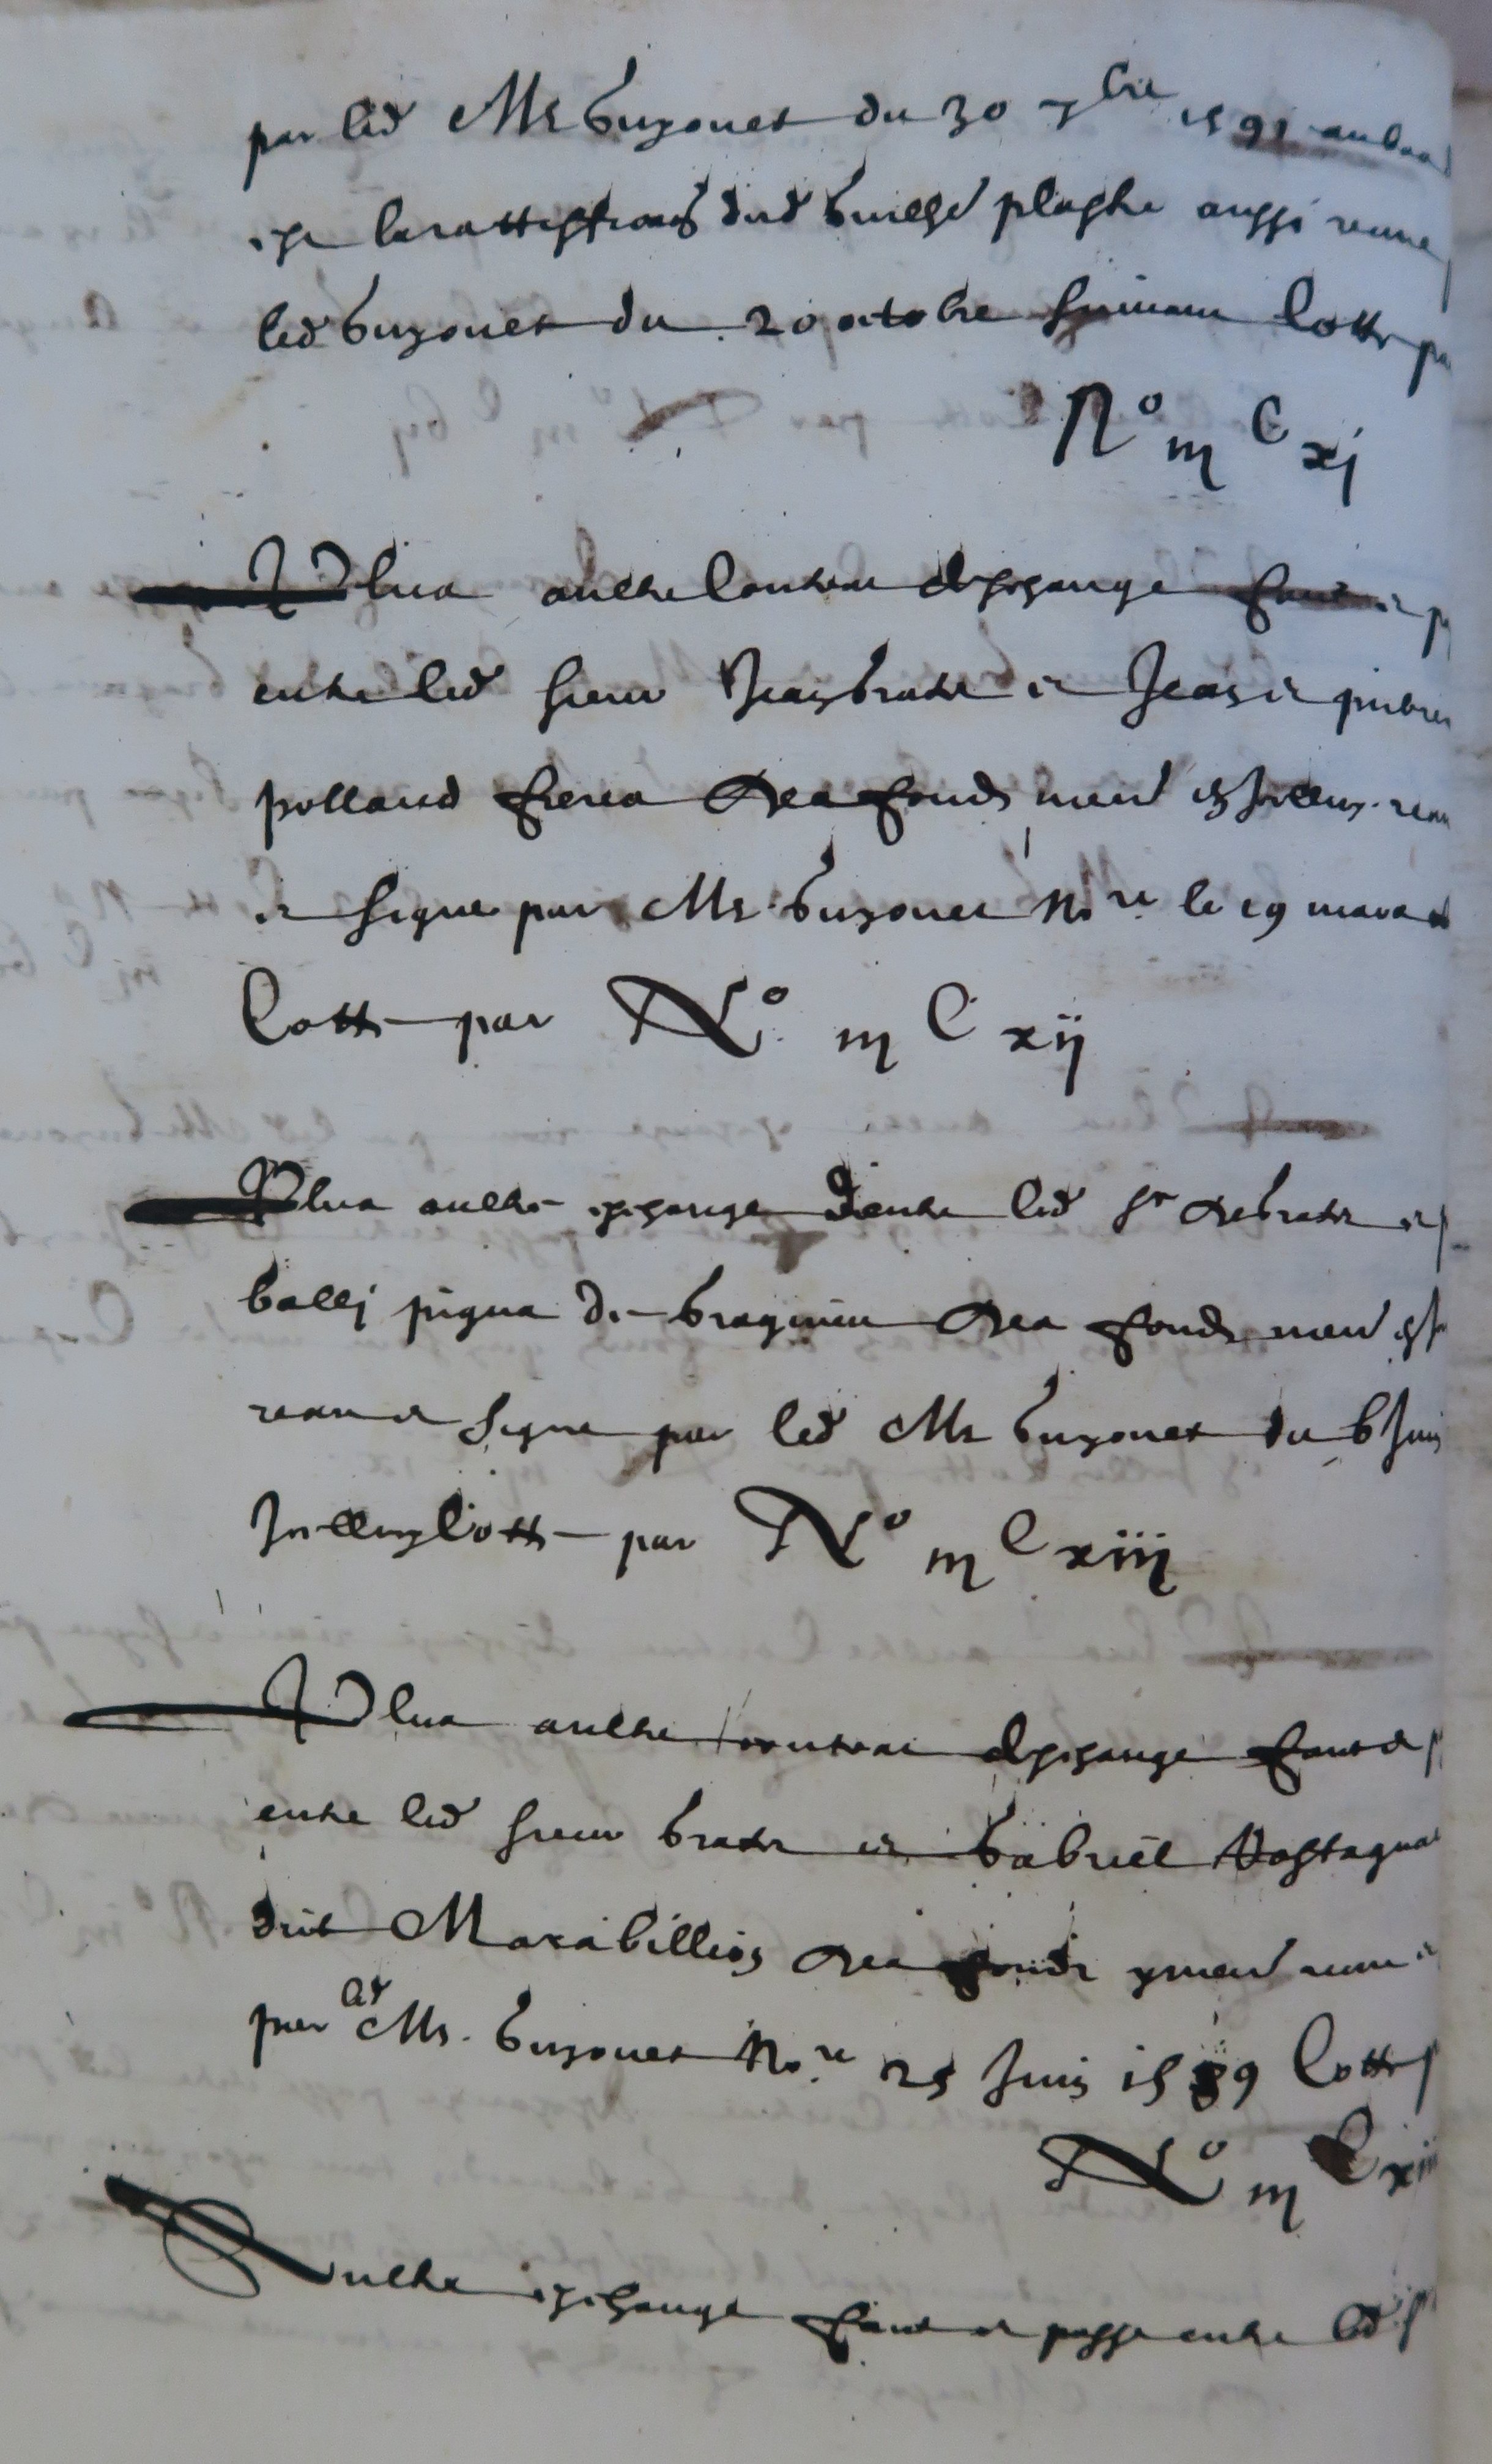 par led Mr Guzonet du 30 7bre 1591 au bas
est la rattiffication dud guilhe plasthe aussi receue
led Guzonet du 20 octobre suivant Cotte par
No iij C xj
Plus aultre Contrat deschange faict et p
entre led sieur Jean brade et Jean et pierre
pollard freres des fonds men en Icelluy receu
et signe par Mr Guzonet Nore le 19 mars
Cotte par No iij C xij
Plus aultre eschange dentre led sr de brade et
de des fonds men en
receu et signe par led Mr Guzonet du 6 Juin
Icelluy Cotte par No iij C xiij
Plus aultre contrat deschange faict et p
entre led sieur brade et Gabriel Rostagna
dit Marabillion des fonds y men receu et
par led Mr Guzonet Nore 25 Juin 1589 Cotte p
No iij C xiii
Aultre eschange faict et passe entre led s